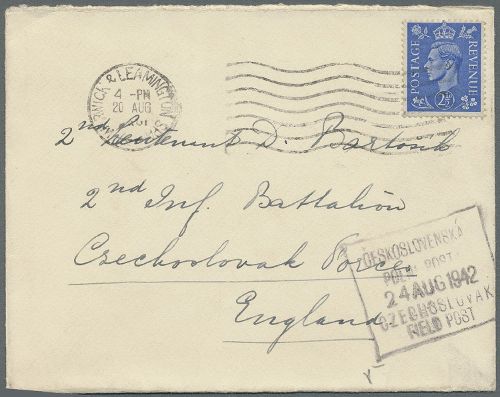 POSTAGE REVENUE
2½D
WARWICK & LEAMINGTON SPA
4 - PM
20 AUG
2nd Lieutenant D. Bartošík
2nd Inf. Battalion
Czechoslovak Force.
England
ČESKOSLOVENSKÁ
POLNÍ POSTA
24 AUG 1942
CZECHOSLOVAK
FIELD POST